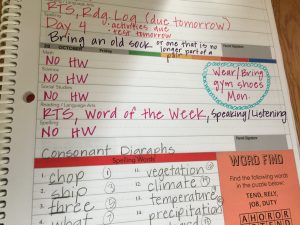 RTS, Rdg. Log (due tomorrow)
Day 4
activities due
tomorrow
Bring an old sock or one that is no
longer part of a
pair
OCTOBER
Friday
Math
NO HW
Science
NO HW
Social Studies
NO HW
Wear/Bring
gym shoes
Mon.
Reading / Language Arts
RTS, Word of the Week, Speaking/Listening
Spelling
NO HW
Consonant Digraphs
Spelling Words
1. chop
2. ship
3. three
4. what
vegetation
climate
temperature
precipitation
WORD FIND
Find the following
words in the
puzzle below:
TEND, RELY,
JOB, DUTY
AHOROR